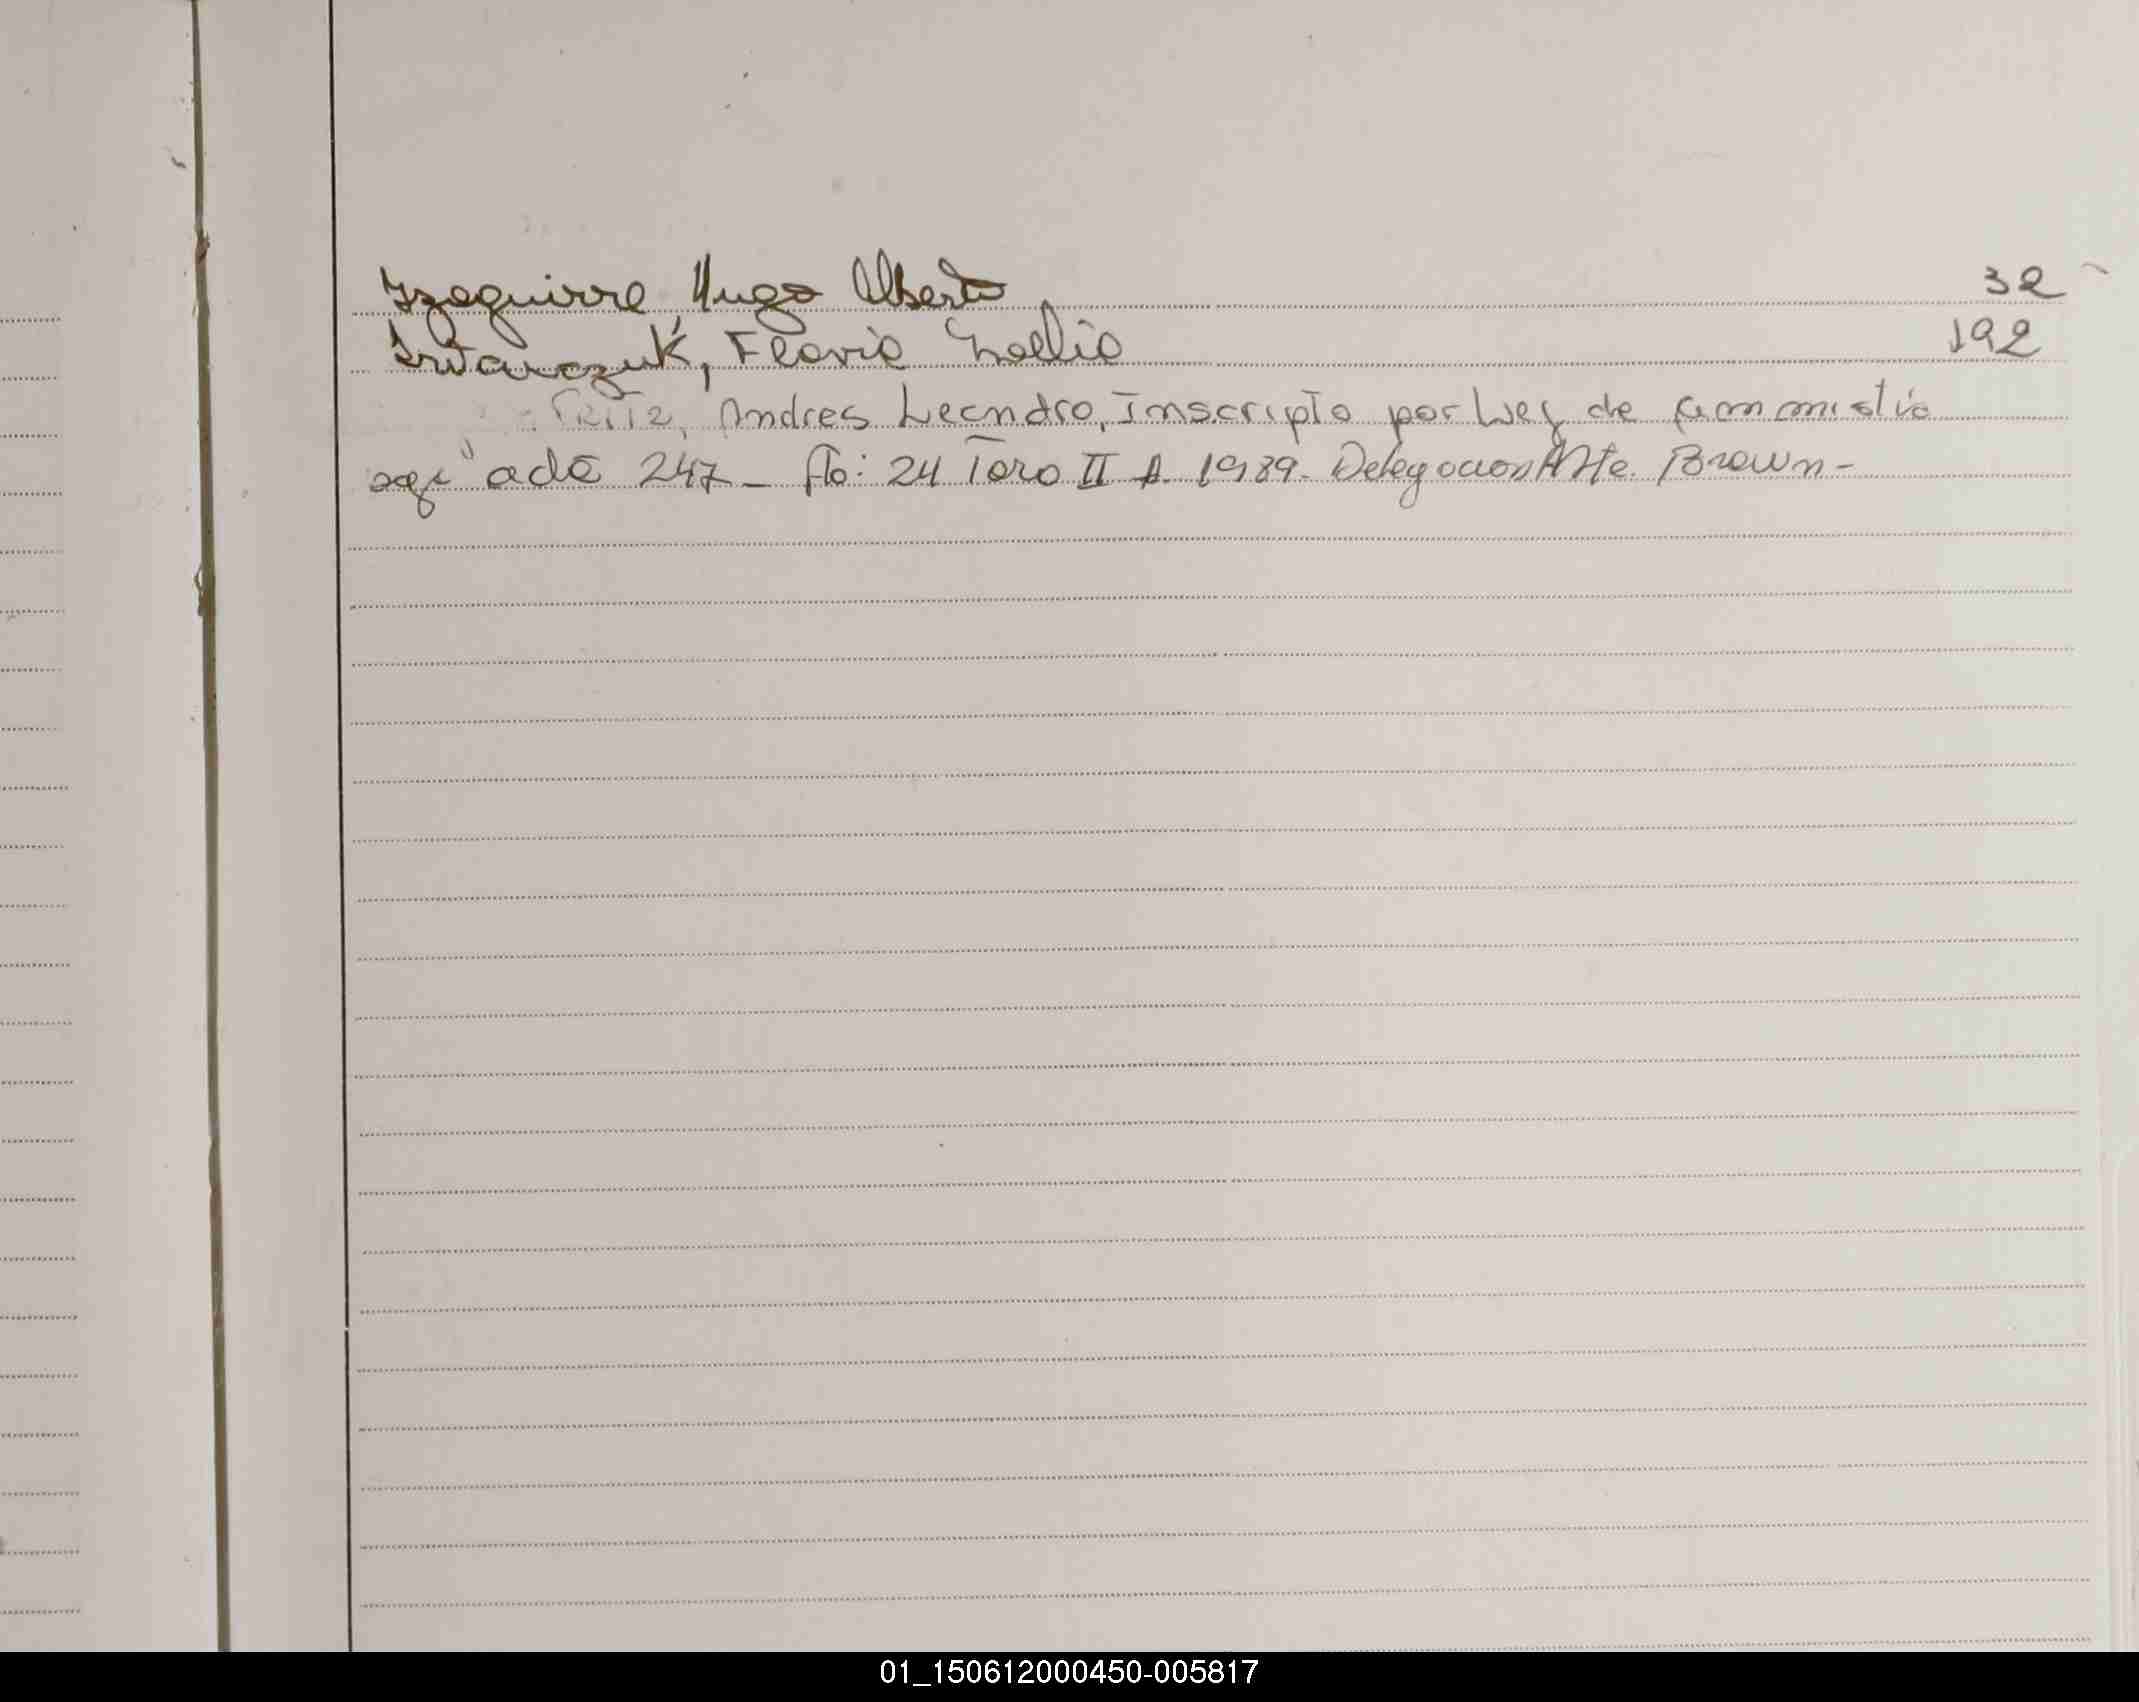 Yzaguirre, Hugo Alberto 32
Iwanczuk, Flavia 192
Andres Leandro, Inscripto por Ley de ammistia
acta 247 - fto: 24 Tomo II A. 1989. Delegacion Alte. Brown -
01_150612000450-005817